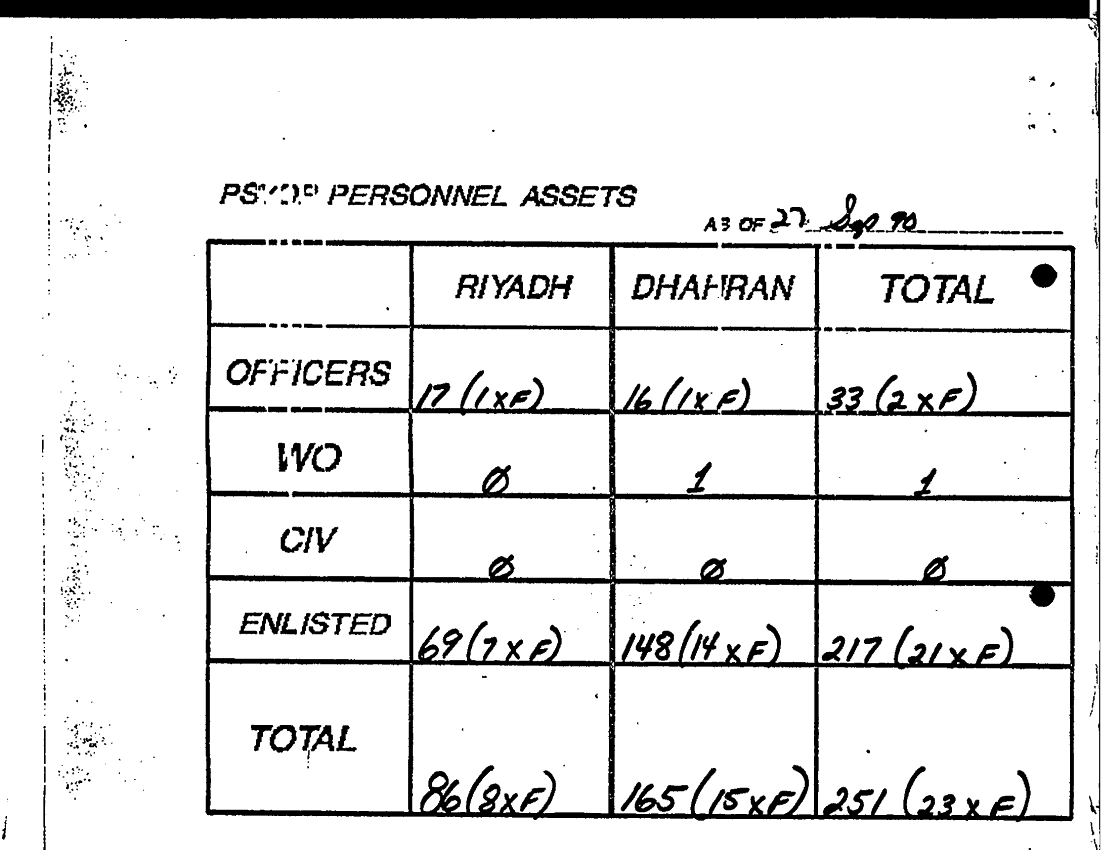 PSYOP PERSONNEL ASSETS
AS OF 27 Sep 90
RIYADH DHAHRAN TOTAL
OFFICERS 17 (1xF) 16 (1xF) 33 (2xF)
WO Ø 1 1
CIV Ø Ø Ø
ENLISTED 69 (7xF) 148 (14xF) 217 (21xF)
TOTAL 86 (8xF) 165 (15xF) 251 (23xF)